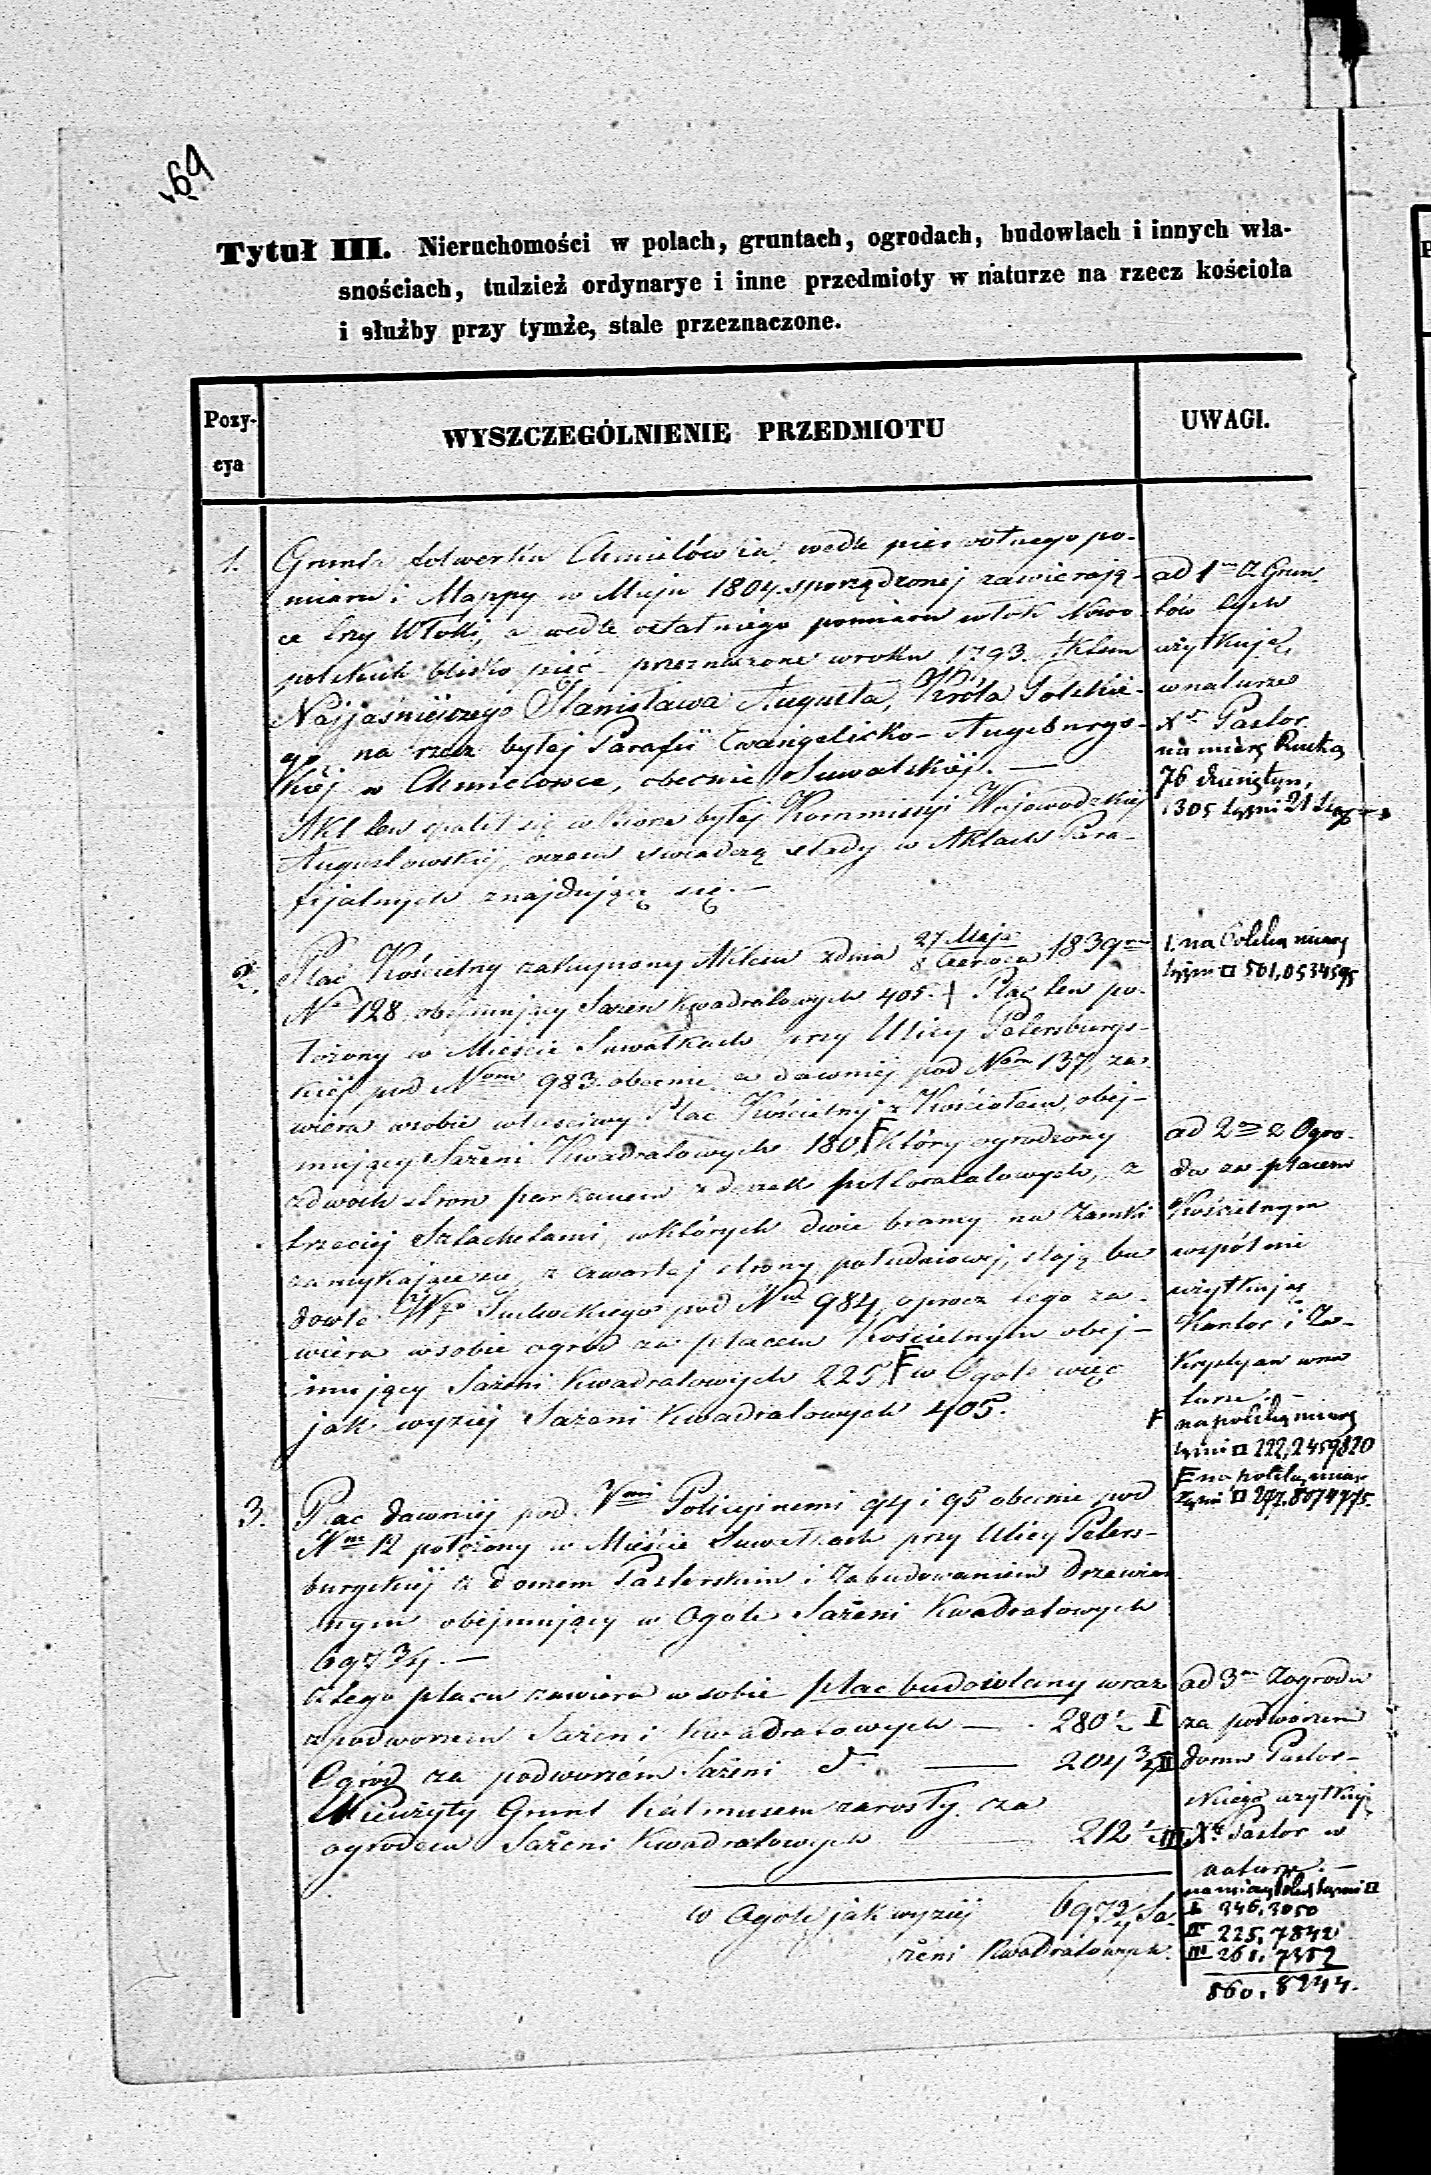 69
Tytuł III. Nieruchomości w polach, gruntach, ogrodach, budowlach i innych wła-
snościach, tudzież ordynarye i inne przedmioty w naturze na rzecz kościoła
i służby przy tymże, stale przeznaczone.
Pozy-
cya
WYSZCZEGÓLNIENIE PRZEDMIOTU
UWAGI.
1.
Grunta folwerku Chmielówka, wedle pierwotnego po-
miaru i Mappy w Maju 1804 sporządzonej zawierają-
ce trzy Włoki, a wedle ostatniego pomiaru włók Nowo-
polskich blisko pięć przeznaczone w roku 1793. Aktem
Najjaśniejszego Stanisława Augusta, Króla Polskie-
go, na rzecz byłej Parafii Ewangelicko-Augsburgs-
kiej w Chmielowce, obecnie Suwalskiej. —
Akt ten spalił się w Biórze byłej Kommissyi Wojewódzkiej
Augustowskiej, oczem świadczą ślady w Aktach Para-
fijalnych znajdujące się. —
ad 1m Z Grun-
tów tych
użytkuje
w naturze
Xdz Pastor
na miarę Ruską
76 dziesiątyn,
1305 sążni 21
2.
Plac Kościelny zakupiony Aktem z dnia 27 Maja / 8 Czerwca 1839 r.
No 128 obejmujący Sążeni Kwadratowych 405. Plac ten po-
łożony w Mieście Suwałkach przy Ulicy Petersburgs-
kiej, pod Nom 983 obecnie, a dawniej pod Nom 137, za-
wiera w sobie właściwy Plac Kościelny z Kościołem, obej-
mujący Sążeni Kwadratowych 180, F który ogrodzony
z dwóch stron parkanem z desek półtoracalowych, z
trzeciej Sztachetami, w których dwie bramy na Zamki
zamykające się, z czwartej strony południowej, stoją bu
dowle Wgo pod Nm 984, oprócz tego za-
wiera w sobie ogród za placem Kościelnym obej-
mujący Sążeni Kwadratowych 225, F w Ogóle więc
jak wyżej Sążeni Kwadratowych 405.
1. na Polską miarę
sążni □ 501,0534595
ad 2m z Ogro-
du za placem
Kościelnym
wspólnie
użytkują
Kantor i Za-
krystyan w na
turze. —
F na polską miarę
sążni □ 222,2459820
F na polską miarę
sążni □ 277,8074775
3.
Plac dawniej pod Nmi Policyjnemi 94 i 95 obecnie pod
Nm 12 położony w Mieście Suwałkach przy Ulicy Peters-
burgskiej z domem Pastorskim i Zabudowaniem Drewnia
nym obejmujący w Ogóle Sążeni Kwadratowych
697 3/4. —
z tego placu zawiera w sobie plac budowlany wraz
z podworzem Sążeni Kwadratowych — 280 1/2 I
Ogród za podworzem Sążeni do — 204 3/4 II
Nieużyty Grunt kalmusem zarosły za
ogrodem Sążeni Kwadratowych — 212 1/2 III
w Ogóle jak wyżej 697 3/4 Są-
żeni Kwadratowych.
ad 3m Z ogrodu
za podwórzem
domu Pastor-
skiego użytkuje
Xdz Pastor w
naturze. —
na miarę Polską sążni □
I 346,3050
II 225,7842
III 261,7352
860,8244.